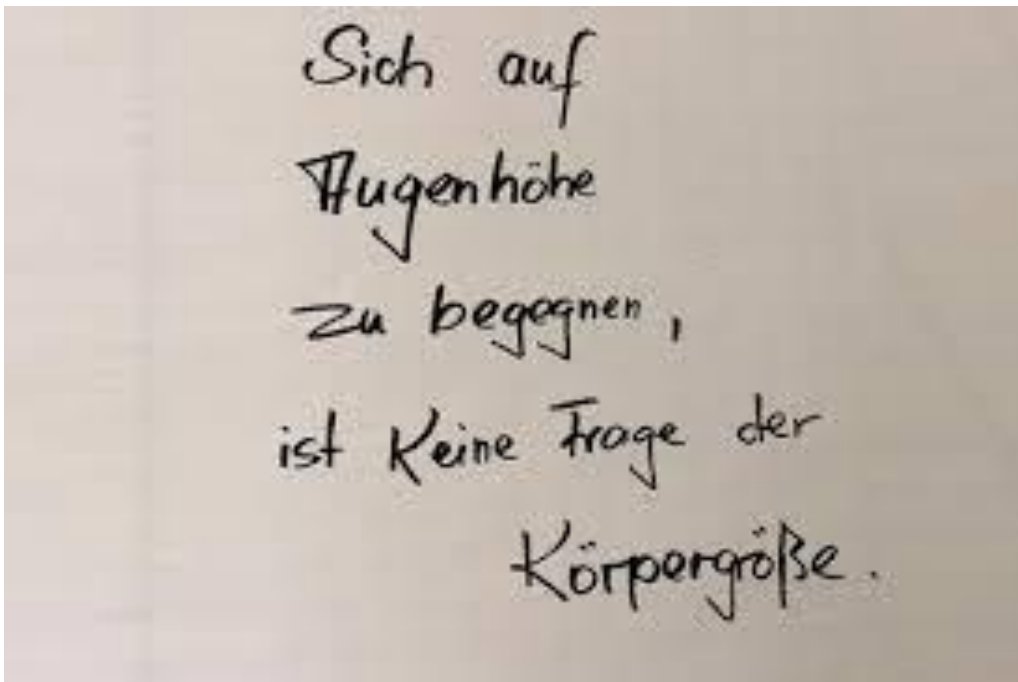 Sich auf
Augenhöhe
zu begegnen,
ist keine Frage der
Körpergröße.